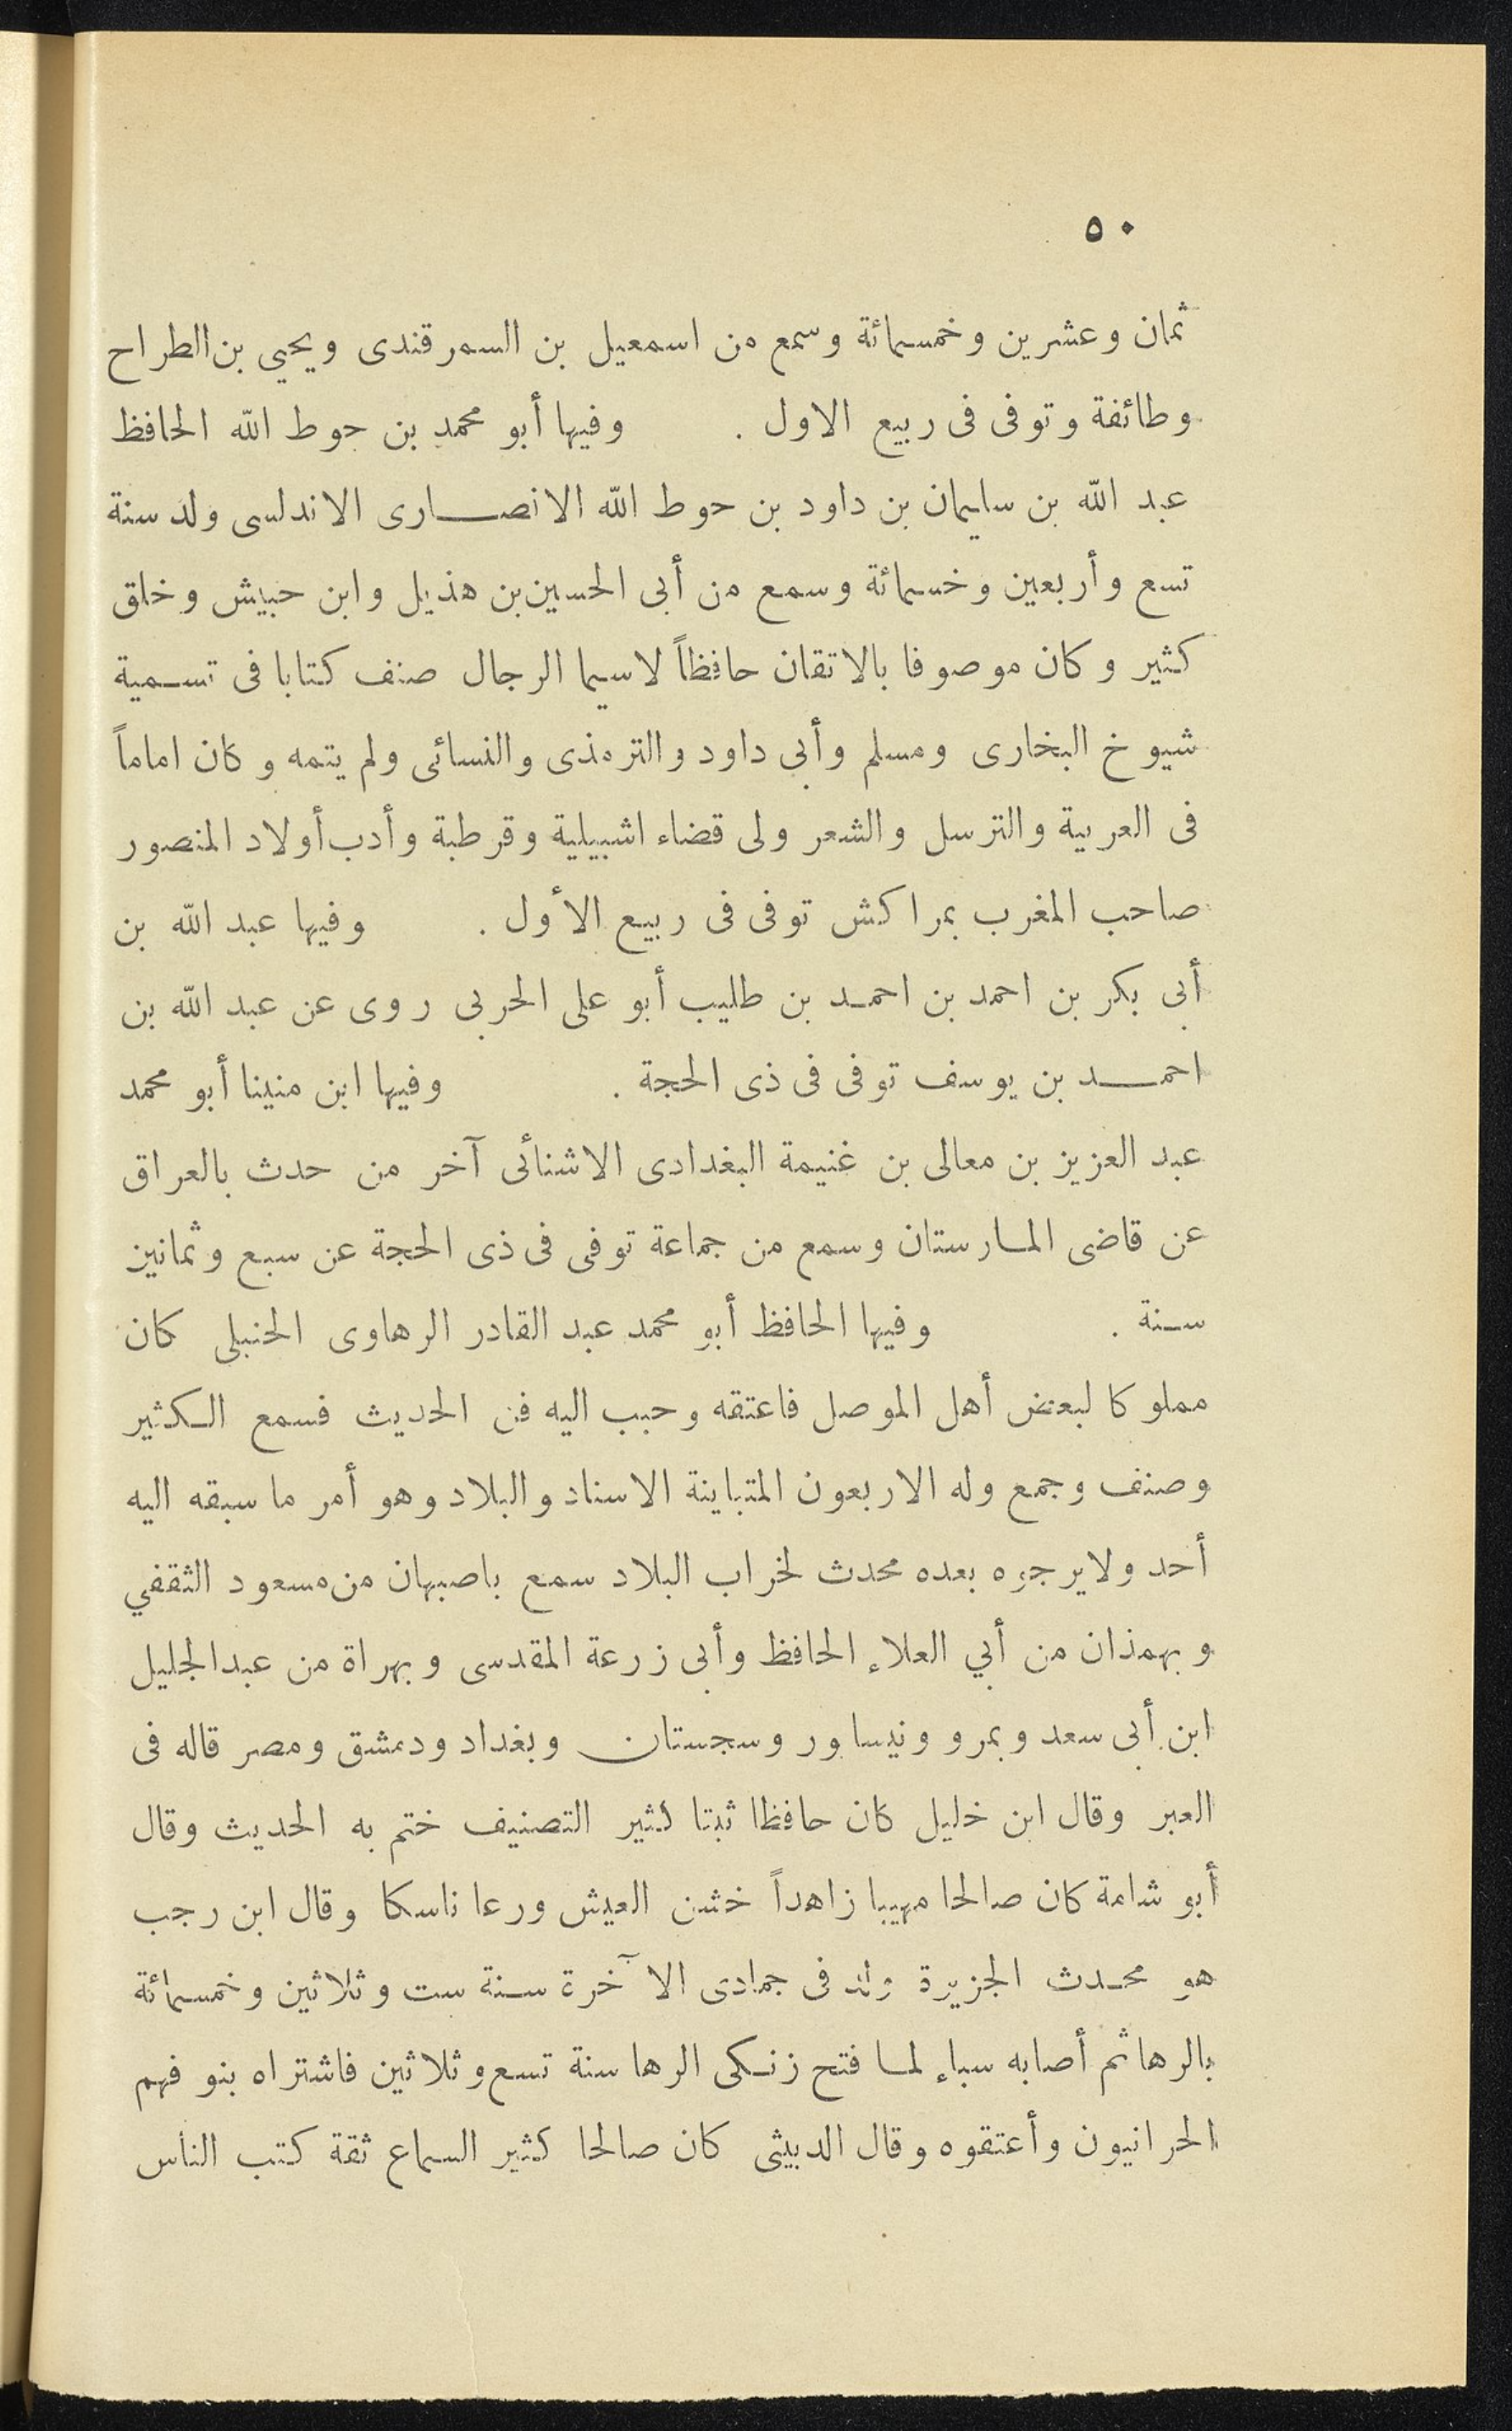 ٥٠
ثمان وعشرين وخمسمائة وسمع من اسمعيل بن السمرقندى ويحيي بن الطراح
وطائفة وتوفى فى ربيع الاول . وفيها أبو محمد بن حوط الله الحافظ
عبد الله بن سليمان بن داود بن حوط الله الانصارى الاندلسى ولد سنة
تسع وأربعين وخمسمائة وسمع من أبى الحسين بن هذيل وابن حبيش وخلق
كثير وكان موصوفا بالاتقان حافظاً لاسيما الرجال صنف كتابا فى تسمية
شيوخ البخارى ومسلم وأبى داود والترمذى والنسائى ولم يتمه وكان اماماً
فى العربية والترسل والشعر ولى قضاء اشبيلية وقرطبة وأدب أولاد المنصور
صاحب المغرب بمراكش توفى فى ربيع الأول . وفيها عبد الله بن
أبى بكر بن احمد بن احمد بن طليب أبو على الحربى روى عن عبد الله بن
احمد بن يوسف توفى فى ذى الحجة . وفيها ابن منينا أبو محمد
عبد العزيز بن معالى بن غنيمة البغدادى الاشنائى آخر من حدث بالعراق
عن قاضى المارستان وسمع من جماعة توفى فى ذى الحجة عن سبع وثمانين
سنة . وفيها الحافظ أبو محمد عبد القادر الرهاوى الحنبلى كان
مملوكا لبعض أهل الموصل فاعتقه وحبب اليه فن الحديث فسمع الكثير
وصنف وجمع وله الاربعون المتباينة الاسناد والبلاد وهو أمر ما سبقه اليه
أحد ولايرجوه بعده محدث لخراب البلاد سمع باصبهان من مسعود الثقفي
وبهمذان من أبي العلاء الحافظ وأبى زرعة المقدسى وبهراة من عبدالجليل
ابن أبى سعد وبمرو ونيسابور وسجستان وبغداد ودمشق ومصر قاله فى
العبر وقال ابن خليل كان حافظا ثبتا كثير التصنيف ختم به الحديث وقال
أبو شامة كان صالحا مهيبا زاهداً خشن العيش ورعا ناسكا وقال ابن رجب
هو محدث الجزيرة ولد فى جمادى الآخرة سنة ست وثلاثين وخمسمائة
بالرها ثم أصابه سباء لما فتح زنكى الرها سنة تسع وثلاثين فاشتراه بنو فهم
الحرانيون وأعتقوه وقال الدبيثى كان صالحا كثير السماع ثقة كتب الناس